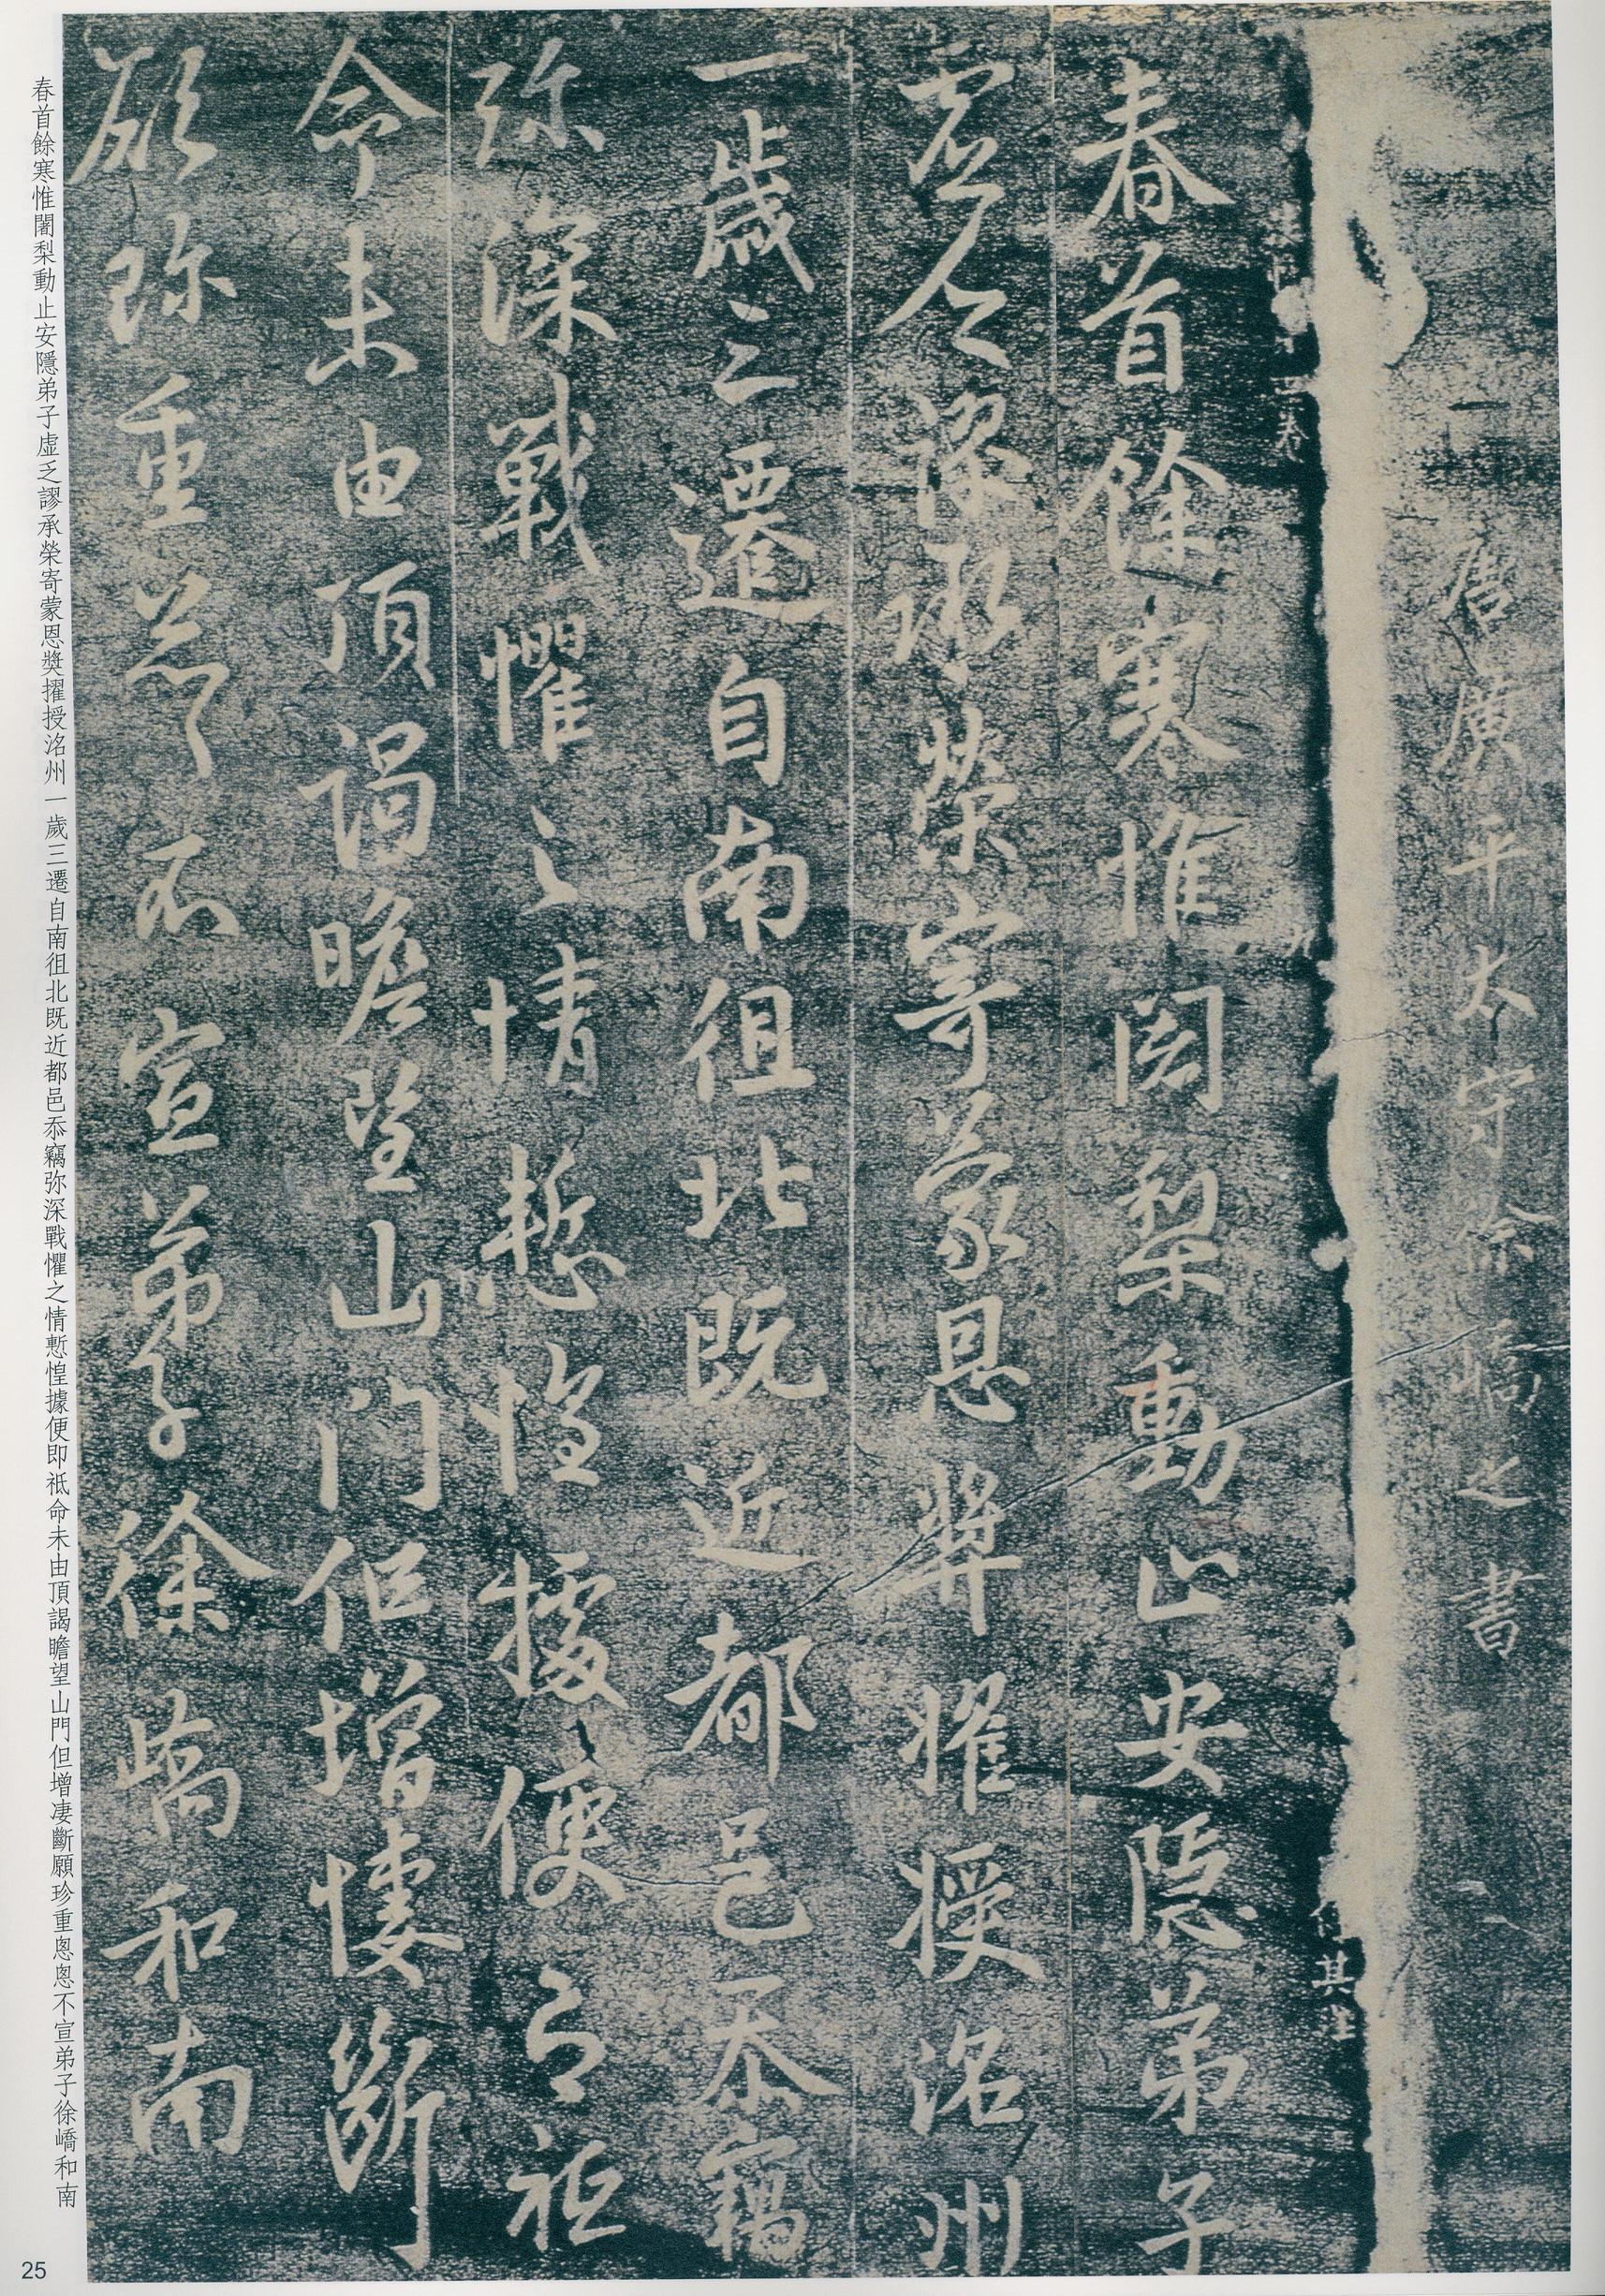 唐廣平太守徐嶠之書
春首餘寒惟闍梨動止安隱弟子
虛乏謬承榮寄蒙恩獎擢授洺州
一歲三遷自南徂北既近都邑忝竊
弥深戰懼之情慙惶據便即祗
命未由頂謁瞻望山門但增悽斷
願珎重怱怱不宣弟子徐嶠和南
春首餘寒惟闍梨動止安隱弟子虛乏謬承榮寄蒙恩獎擢授洺州一歲三遷自南徂北既近都邑忝竊弥深戰懼之情慙惶據便即祗命未由頂謁瞻望山門但增凄斷願珍重悤悤不宣弟子徐嶠和南
25